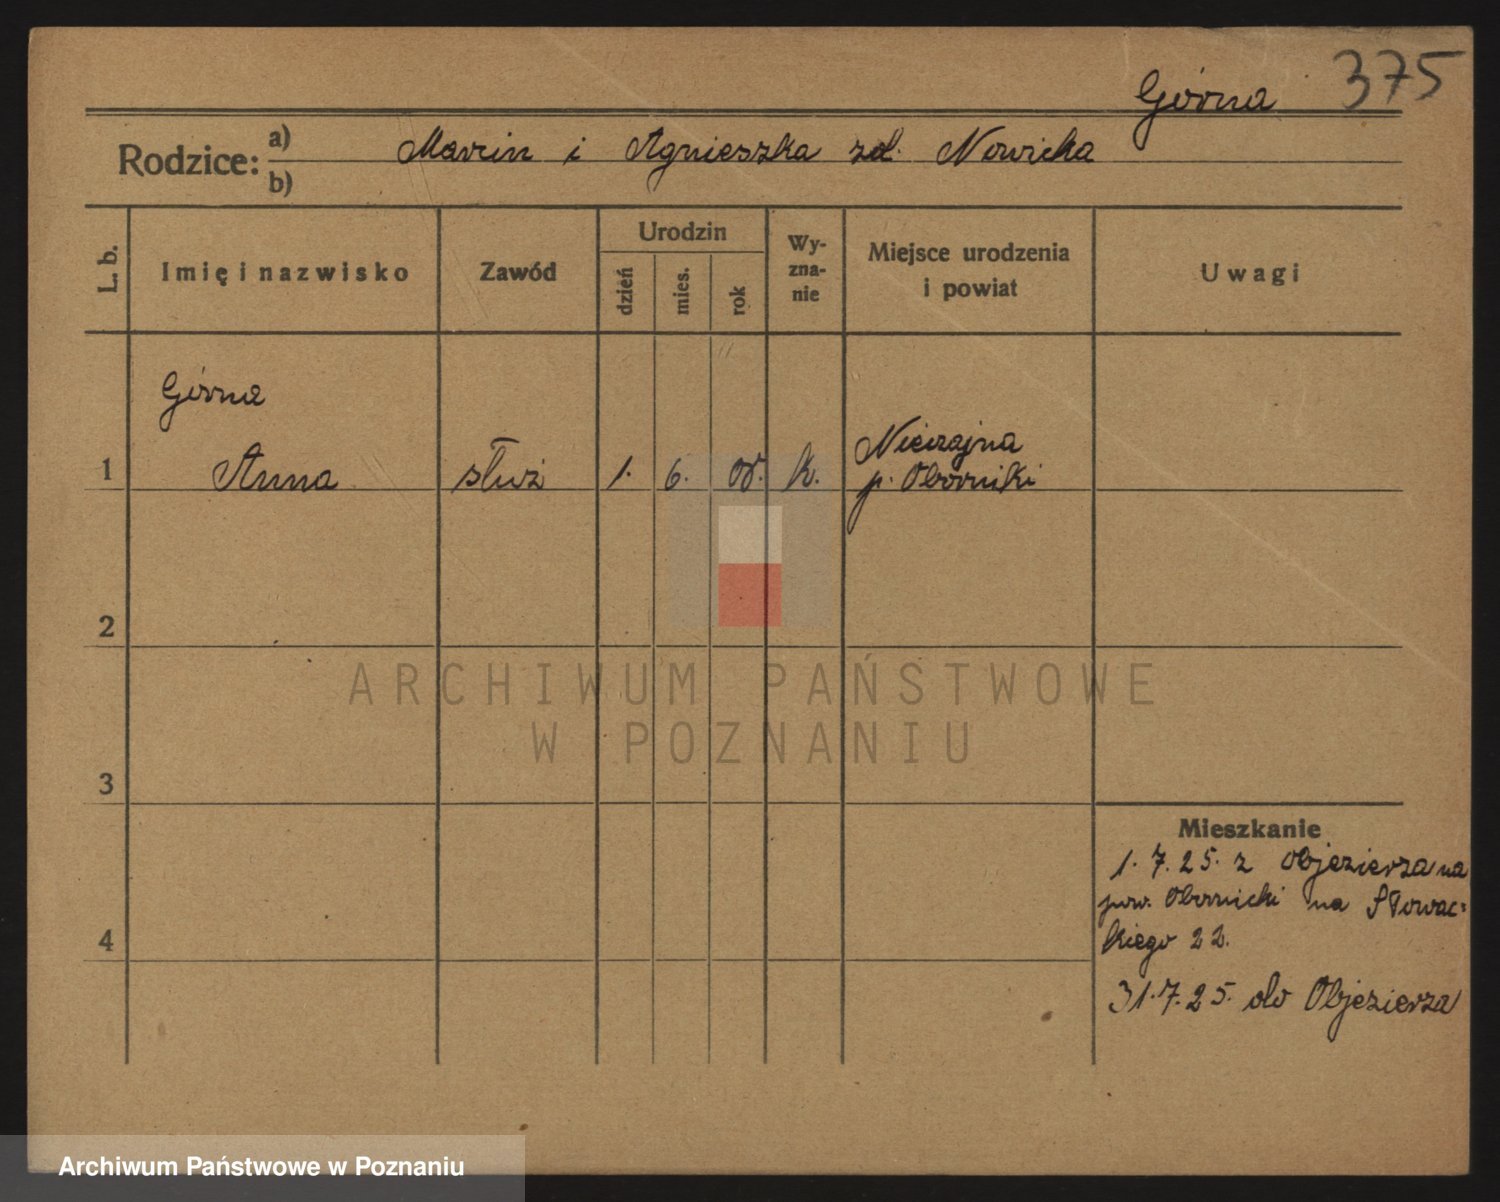 Górna 375
Rodzice: a) Marcin i Agnieszka zd. Nowicka
b)
L. b. Imię i nazwisko Zawód Urodzin dzień mies. rok Wyznanie Miejsce urodzenia i powiat Uwagi
Górna
1 Anna służ 1. 6. k. Nieczajna
p. Oborniki
2
3
4
Mieszkanie
1. 7. 25. z Objezierza na
pow. Obornicki na Słowac-
kiego 22.
31. 7. 25. do Objezierza
ARCHIWUM PAŃSTWOWE
W POZNANIU
Archiwum Państwowe w Poznaniu